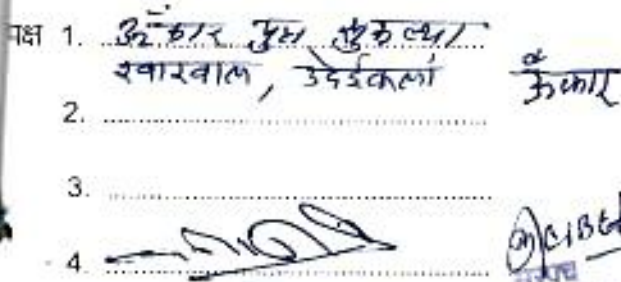 पक्ष 1. ऊँकार पुत्र सुकल्या
खारवाल, उदईकलां
ऊँकार
2.
3.
4.